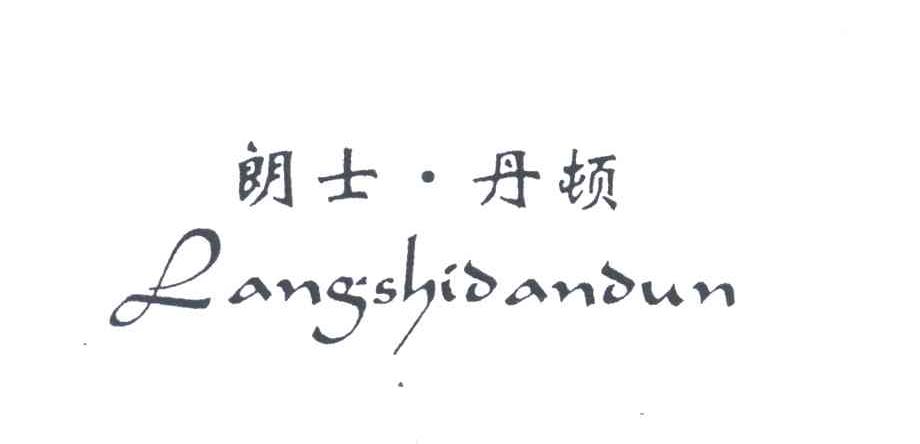 朗士·丹顿
Langshidandun